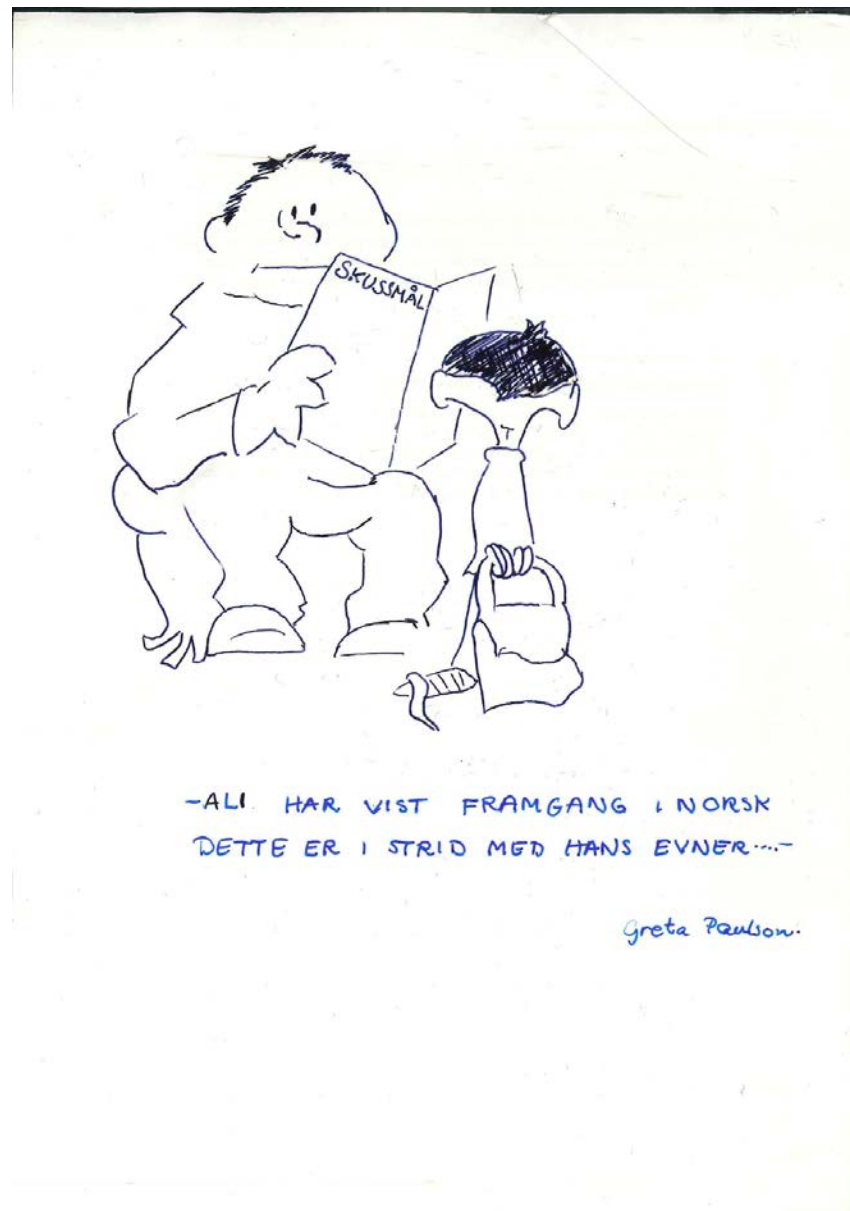 SKUSSMÅL
-ALI HAR VIST FRAMGANG I NORSK
DETTE ER I STRID MED HANS EVNER....-
Greta Paulson.